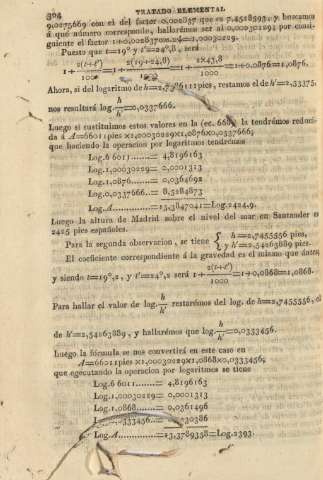 324 TRATADO ELEMENTAL
9,0075669 con el del factor 0,002837 que es 7,4528593, y buscamos
á qué número corresponde, hallarémos ser al 0,00030291 por consi-
guiente el factor 1+0,002837cos.2d=1,00030229.
Puesto que t=19° y t'=24°,8, será
1+2(t+t')/1000=1+2(19+24,8)/1000=1+2×43,8/1000=1+0,0876=1,0876.
Ahora, si del logaritmo de h=2,7356111 pies, restamos el de h'=2,53375,
nos resultará log.h/h'=0,0337666.
Luego si sustituimos estos valores en la (ec. 668) la tendrémos reduci-
da á A=66011pies×1,00030229×1,0876×0,0337666;
que haciendo la operacion por logaritmos tendrémos
Log.66011......= 4,8196163
Log.1,00030229= 0,0001313
Log.1,0876.....= 0,0364692
Log.0,0337666..= 8,5284873
Log.A..........=13,3847041=Log.2424,9.
Luego la altura de Madrid sobre el nivel del mar en Santander es
2425 pies españoles.
Para la segunda observacion, se tiene { h=2,7455556 pies,
y h'=2,54263889 pies.
El coeficiente correspondiente á la gravedad es el mismo que ántes,
y siendo t=19°,2, y t'=24°,2 será 1+2(t+t')/1000=1+0,0868=1,0868.
Para hallar el valor de log.h/h' restarémos del log. de h=2,7455556, el
de h'=2,54263889, y hallarémos que log.h/h'=0,0333456.
Luégo la fórmula se nos convertirá en este caso en
A=66011pies×1,00030229×1,0868×0,0333456;
que egecutando la operacion por logaritmos se tiene
Log.66011.......= 4,8196163
Log.1,00030229= 0,0001313
Log.1,0868......= 0,0361496
333456...= 30386
Log.A...........=13,3789358=Log.2393.